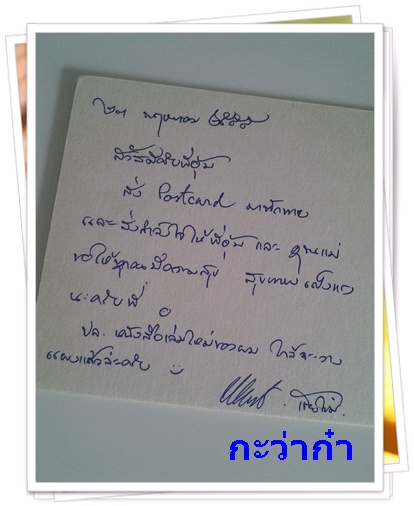 ๒๓ พฤษภาคม ๒๕๕๕
สวัสดีครับพี่อุ้ม
ส่ง Postcard มาทักทาย
และส่งกำลังใจให้พี่อุ้ม และ คุณแม่
ขอให้ทุกคนมีความสุข สุขภาพแข็งแรง
นะครับพี่
ปล. หนังสือเล่มใหม่ของผม ใกล้จะวาง
แผงแล้วล่ะครับ
เชียงใหม่.
กะว่าก๋า